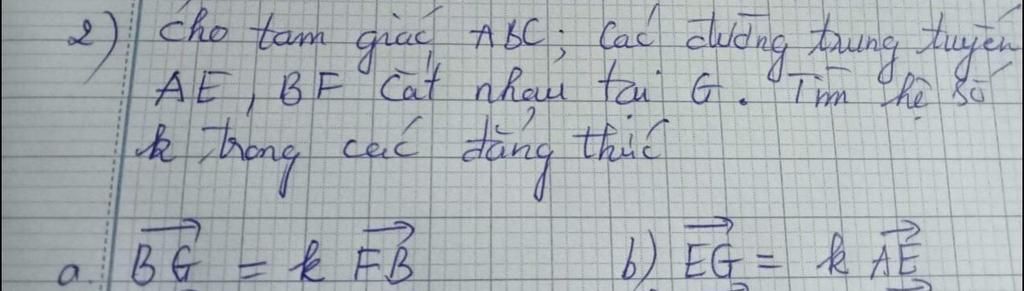 2) Cho tam giác ABC; Các đường trung tuyến
AE, BF cắt nhau tại G. Tìm hệ số
k trong các đẳng thức
a. \overrightarrow{BG} = k \overrightarrow{FB} b) \overrightarrow{EG} = k \overrightarrow{AE}